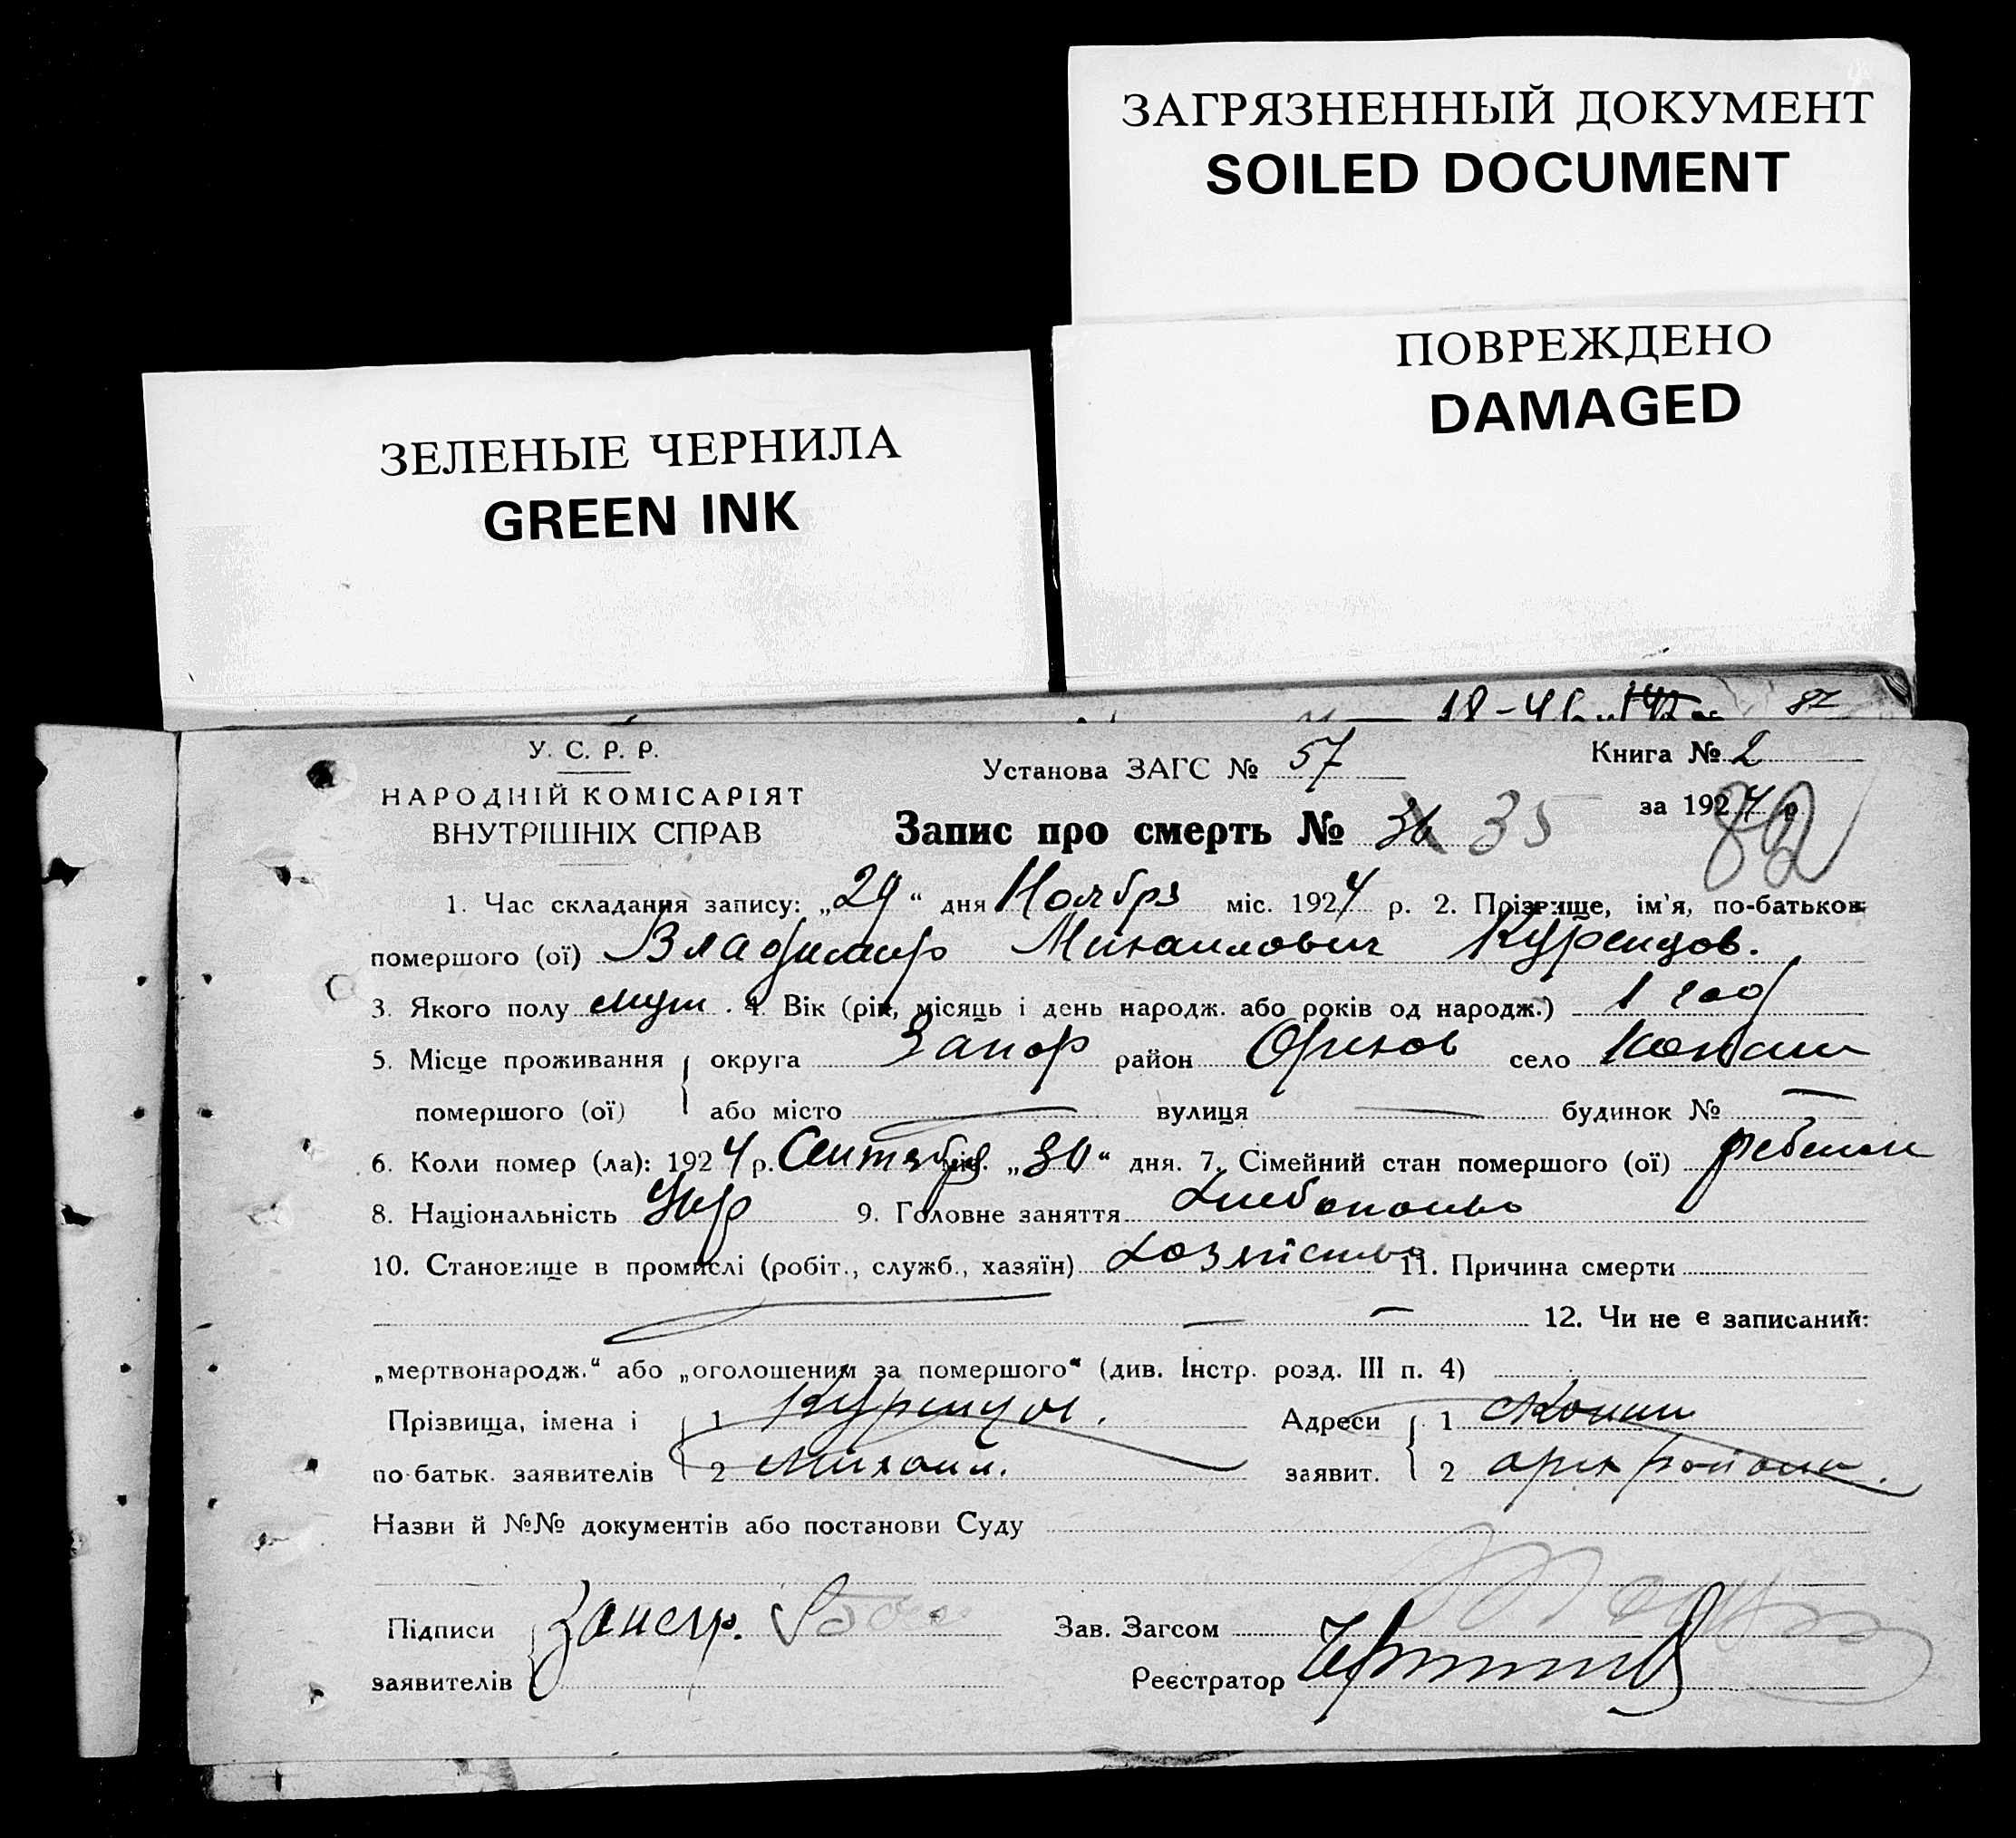 ЗАГРЯЗНЕННЫЙ ДОКУМЕНТ
SOILED DOCUMENT
ПОВРЕЖДЕНО
DAMAGED
ЗЕЛЕНЫЕ ЧЕРНИЛА
GREEN INK
18-4 87
У. С. Р. Р.
НАРОДНІЙ КОМІСАРІЯТ
ВНУТРІШНІХ СПРАВ
Установа ЗАГС № 57
Книга № 2
за 1924 р.
82
Запис про смерть № 36 35
1. Час складання запису: „29“ дня Ноября міс. 1924 р. 2. Прізвище, ім'я, по-батьков
помершого (ої) Владимир Михаилович Куренцов.
3. Якого полу муж. 4. Вік (рік, місяць і день народж. або років од народж.) 1 год
5. Місце проживання округа Запор район Орехов село Копани
помершого (ої) або місто — вулиця — будинок № —
6. Коли помер (ла): 1924 р. Сентября міс. „30“ дня. 7. Сімейний стан помершого (ої) ребенок
8. Національність Укр 9. Головне заняття Хлебопашво
10. Становище в промислі (робіт., служб., хазяїн) 11. Причина смерти
— — — 12. Чи не є записаний:
„мертвонародж.“ або „оголошеним за помершого“ (див. Інстр. розд. III п. 4)
Прізвища, імена і 1 Куренцов. Адреси 1 с Копани
по-батьк. заявителів 2 Михаил. заявит. 2 орех района.
Назви й №№ документів або постанови Суду
Підписи Зав. Загсом
заявителів Реєстратор